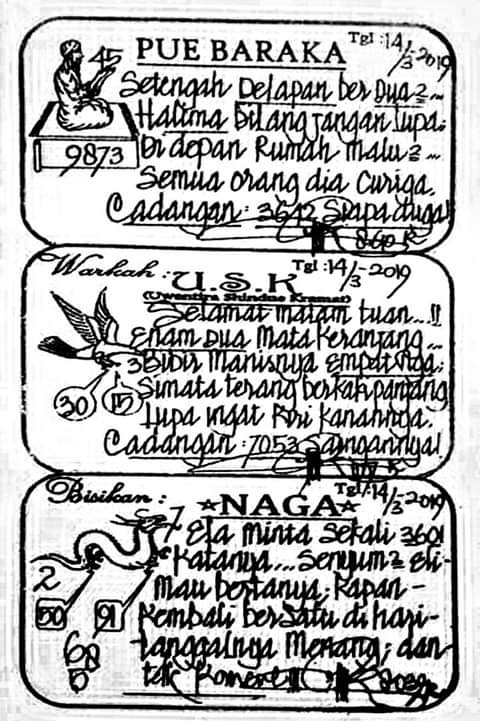 PUE BARAKA Tgl : 14/3-2019
45
Setengah Delapan ber Dua 2 ...
Halima Bilang jangan lupa.
9873
Di depan Rumah malu 2 ...
Semua orang dia Curiga.
Cadangan : 3642 Siapa duga!
Warkah : U.S.K Tgl : 14/3-2019
(Uwentira Shindue Kramat)
Selamat malam tuan...!!
Enam Dua Mata Keranjang ...
3 Bibir Manisnya empat tiga.
30 15
Simata terang berkah panjang
Lupa ingat Kiri Kanannya.
Cadangan : 7053 Saingannya!
Bisikan : ☆NAGA☆ Tgl : 14/3-2019
7
Ela Minta Sekali 3601
Katanya ... Senyum 2 Eli-
2
mau bertanya; Kapan -
50 91
Kembali berSatu di hari-
tanggalnya Menang; dan
68
5